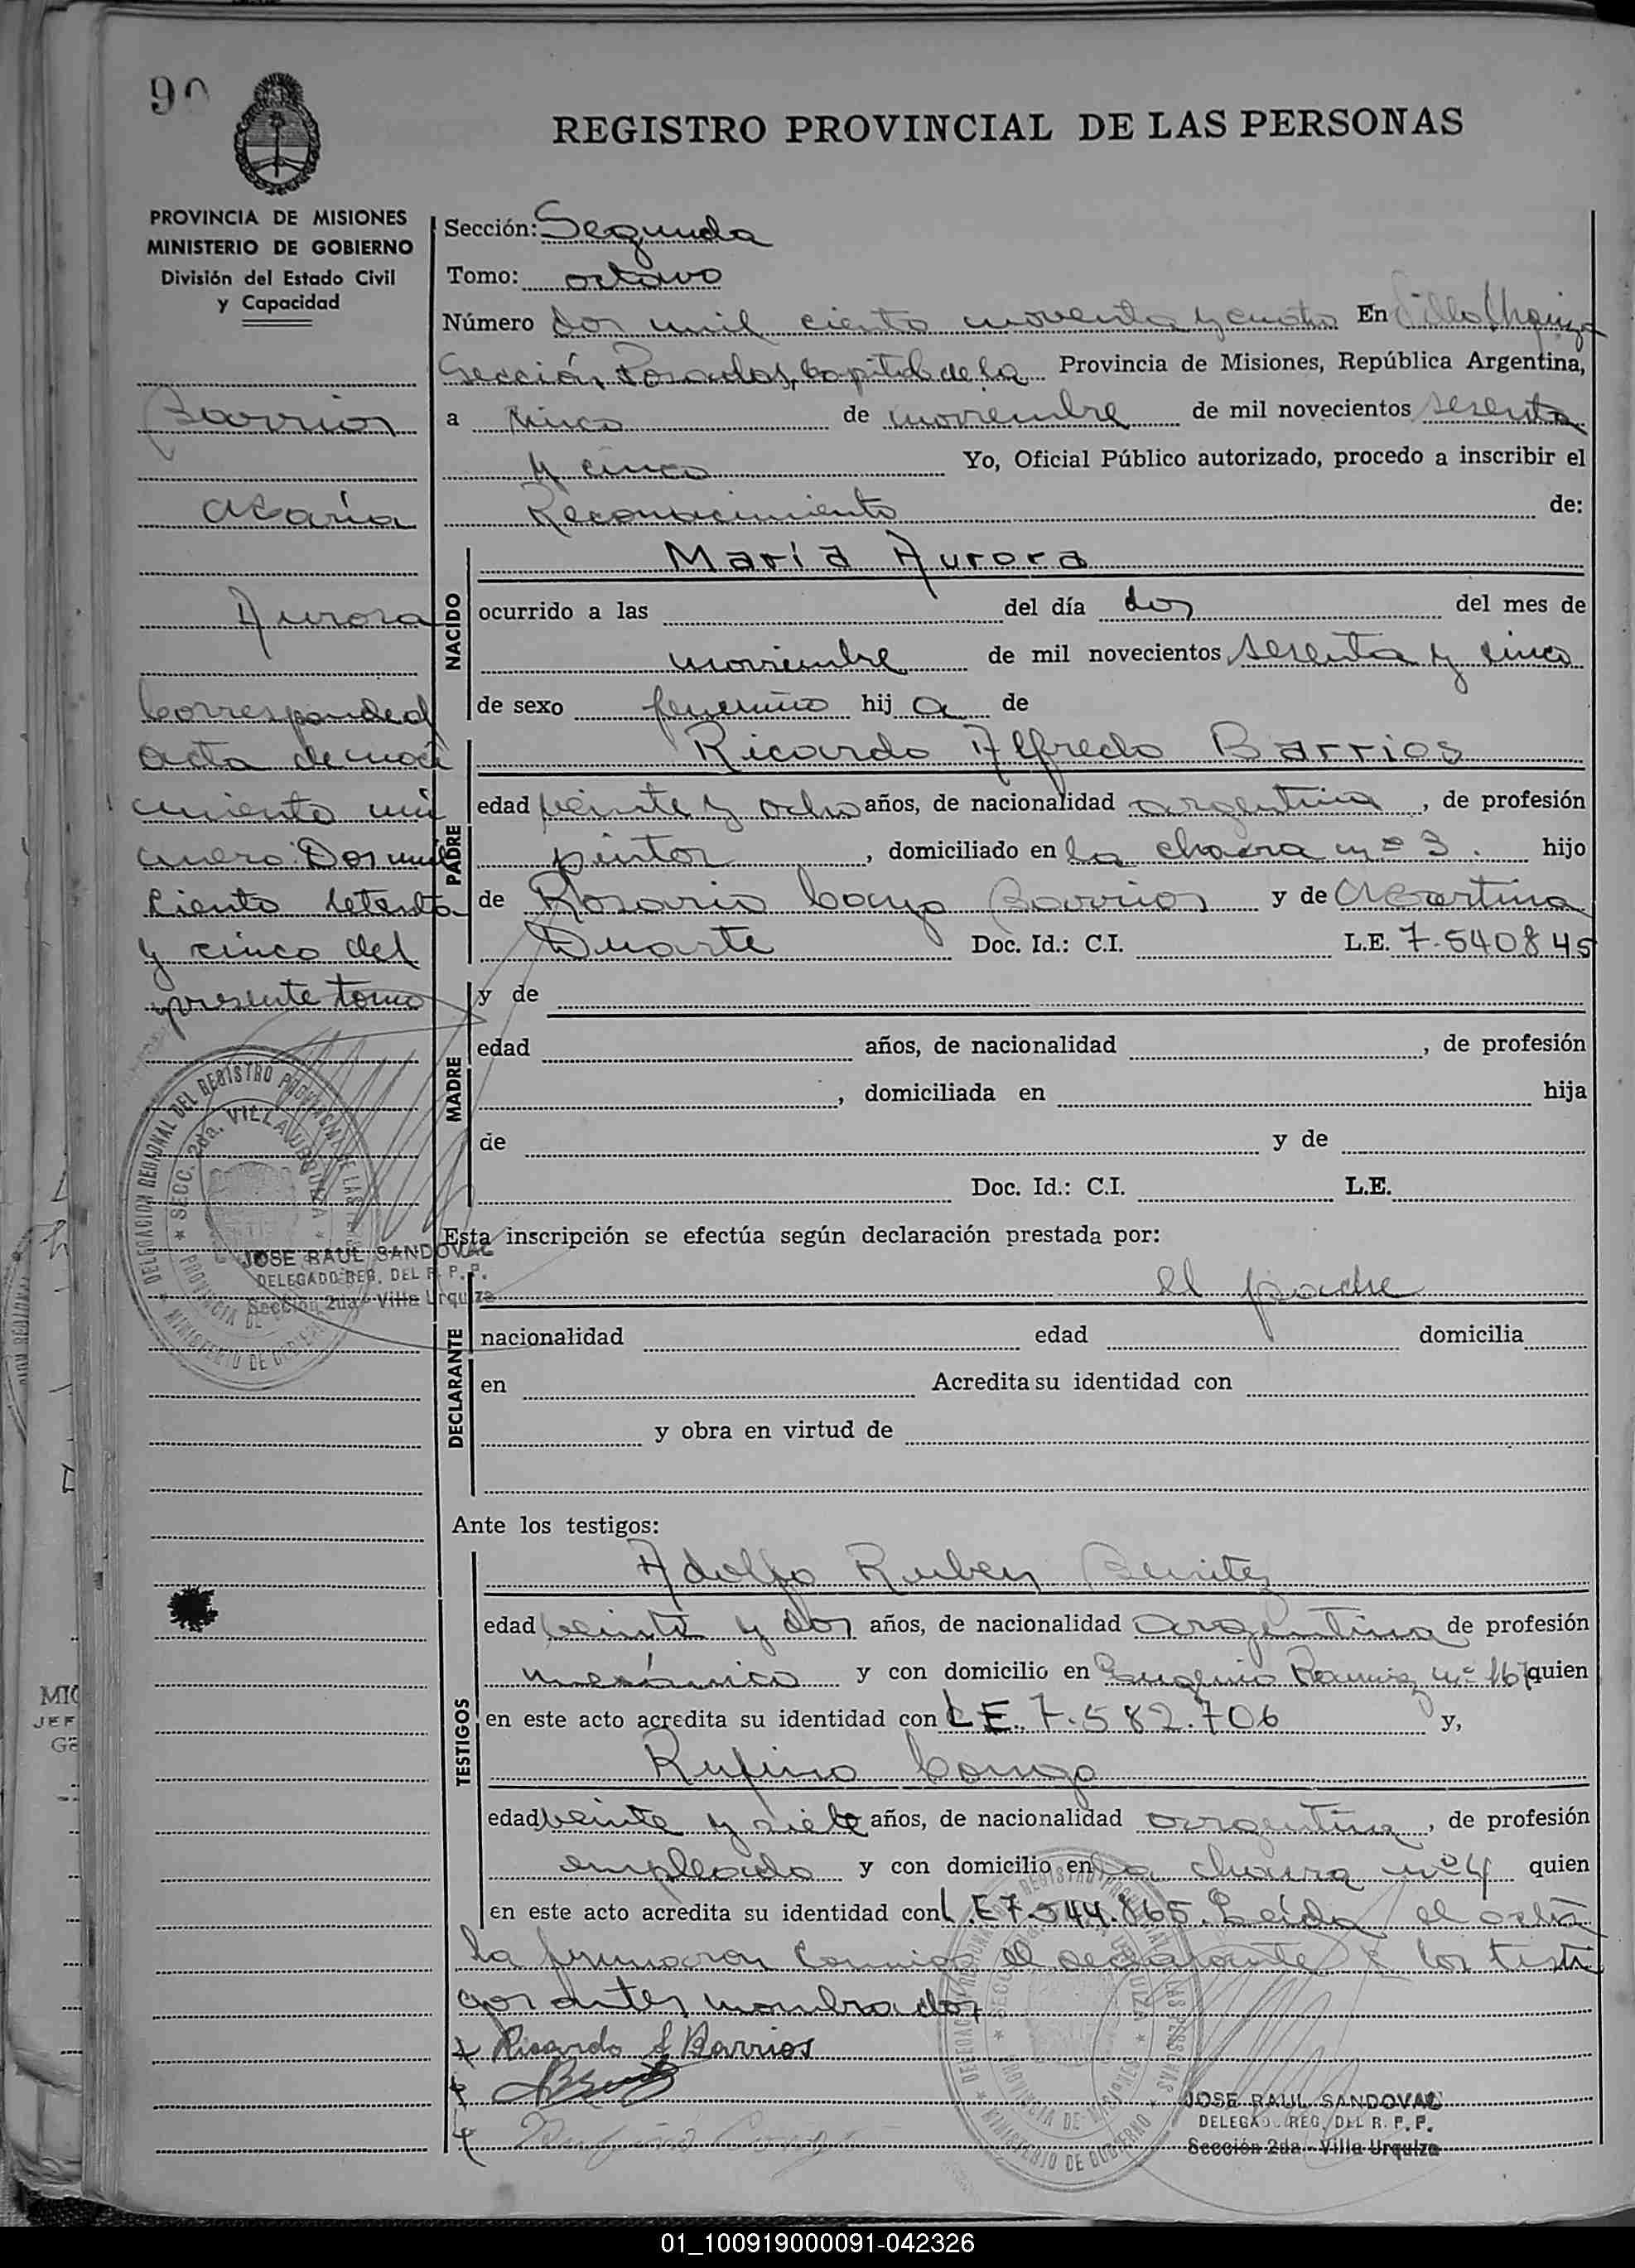 90
REGISTRO PROVINCIAL DE LAS PERSONAS
PROVINCIA DE MISIONES
MINISTERIO DE GOBIERNO
División del Estado Civil
y Capacidad
Barrios
María
Aurora
Corresponde al
acta de naci
miento nú
mero: Dos mil
ciento setenta
y cinco del
presente tomo
DELEGACION REGIONAL DEL REGISTRO PROVINCIAL DE LAS
SECC. 2da. VILLA URQUIZA
PROVINCIA DE
MINISTERIO DE GOBIERNO
JOSE RAUL SANDOVAL
DELEGADO REG. DEL R. P. P.
Sección 2da - Villa Urquiza
Sección: Segunda
Tomo: octavo
Número dos mil ciento noventa y cuatro En Villa Urquiza
Sección Posadas, Capital de la Provincia de Misiones, República Argentina,
a cinco de noviembre de mil novecientos sesenta
y cinco Yo, Oficial Público autorizado, procedo a inscribir el
Reconocimiento de:
NACIDO
María Aurora
ocurrido a las del día dos del mes de
noviembre de mil novecientos sesenta y cinco
de sexo femenino hij a de
PADRE
Ricardo Alfredo Barrios
edad veinte y ocho años, de nacionalidad argentina, de profesión
pintor, domiciliado en la chacra nº 3. hijo
de Rosario Barrios y de Martina
Duarte Doc. Id.: C.I. L.E. 7.540845
MADRE
y de
edad años, de nacionalidad , de profesión
, domiciliada en hija
de y de
Doc. Id.: C.I. L.E.
Esta inscripción se efectúa según declaración prestada por:
DECLARANTE
el padre
nacionalidad edad domicilia
en Acredita su identidad con
y obra en virtud de
Ante los testigos:
TESTIGOS
Adolfo Ruben Benitez
edad veinte y dos años, de nacionalidad argentina de profesión
mecánico y con domicilio en Eugenio Ramirez nº 167 quien
en este acto acredita su identidad con L E. 7.582.706 y,
Rufino
edad veinte y siete años, de nacionalidad argentina, de profesión
empleado y con domicilio en la chacra nº 4 quien
en este acto acredita su identidad con L.E 7.544.865. Leída el acta
la firmaron conmigo el declarante y los testi
gos antes nombrados
Ricardo A Barrios
JOSE RAUL SANDOVAL
DELEGADO REG. DEL R. P. P.
Sección 2da - Villa Urquiza
MINISTERIO DE GOBIERNO
01_100919000091-042326